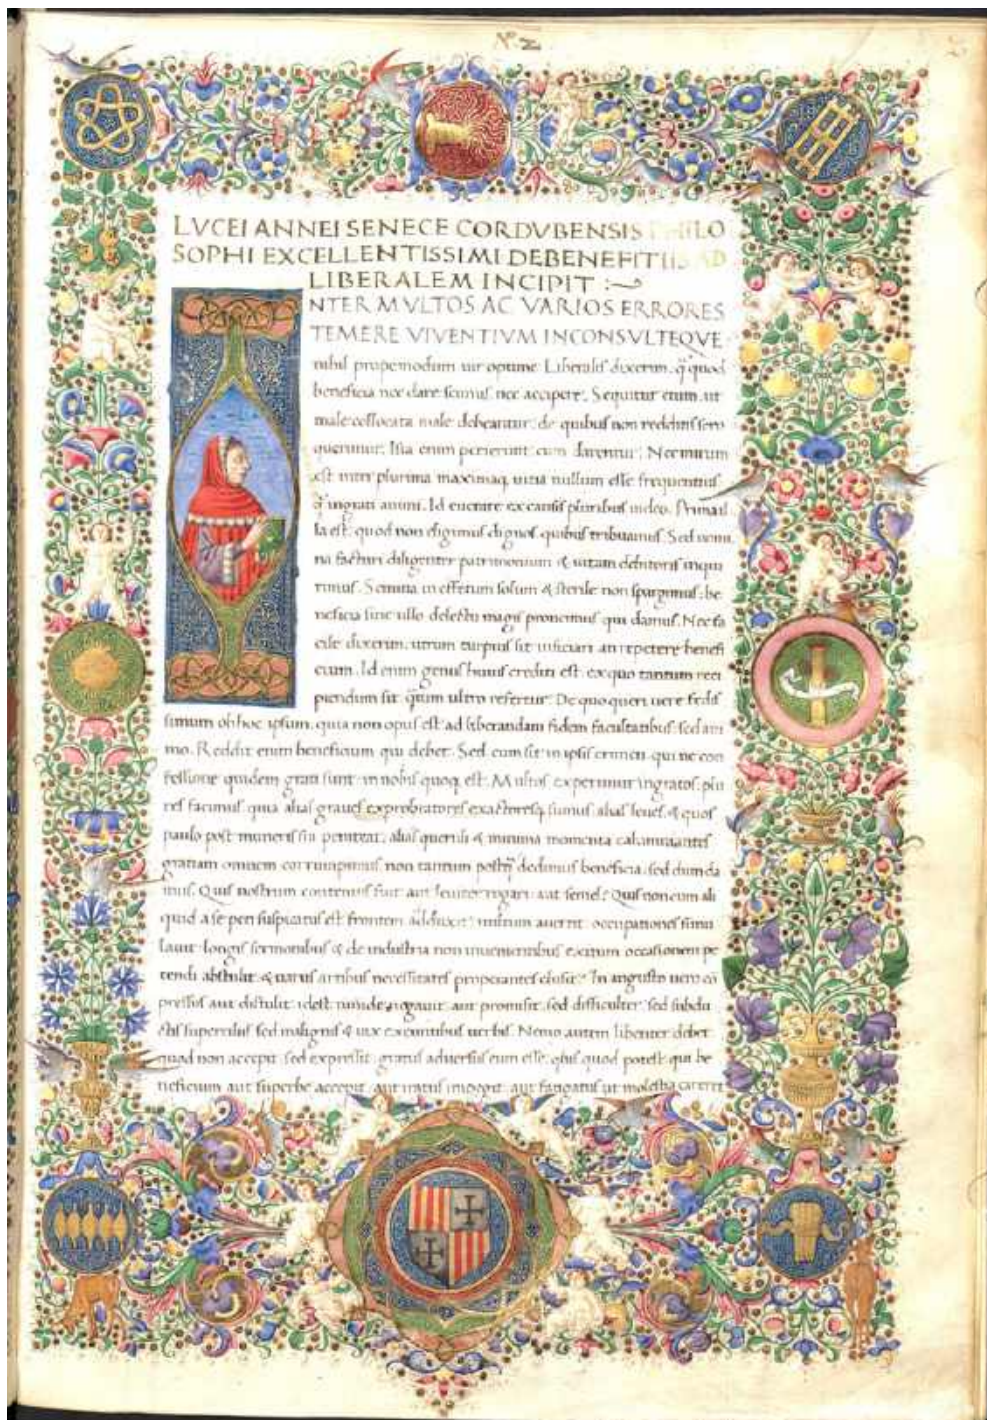 Nº 2
LVCEI ANNEI SENECE CORDVBENSIS PHILO
SOPHI EXCELLENTISSIMI DE BENEFITIIS AD
LIBERALEM INCIPIT :~
NTER MVLTOS AC VARIOS ERRORES
TEMERE VIVENTIVM INCONSVLTEQVE
nihil propemodum uir optime Liberalis dixerim. q̃ quod
beneficia nec dare scimus nec accipere. Sequitur enim ut
male collocata male debeantur. de quibus non redditis sero
querimur. Ista enim perierunt cum darentur. Nec mirum
est inter plurima maximaq; uitia nullum esse frequentius
q̃ ingrati animi. Id euenire ex causis pluribus uideo. Prima il
la est quod non eligimus dignos quibus tribuamus. Sed nomi
na facturi diligenter patrimonium & uitam debitoris inqui
rimus. Semina in effetum solum & sterile non spargimus: be
neficia sine ullo delectu magis proiicimus qui damus. Nec fa
cile dixerim. utrum turpius sit inficiari an repetere benefi
cium. Id enim genus huius crediti est. ex quo tantum reci
piendum sit. q̃tum ultro refertur. De quo queri uere fedis
simum ob hoc ipsum. quia non opus est ad liberandam fidem facultatibus. sed ani
mo. Reddit enim beneficium qui debet. Sed cum sit in ipsis crimen. qui ne con
fessione quidem grati sunt. in nobis quoq; est. Multos experimur ingratos. plu
res facimus. quia alias graues exprobratores exactoresq; sumus. alias leues & quos
paulo post muneris sui peniteat. alias queruli & minima momenta calumniantes
gratiam omnem corrumpimus non tantum postq̃ dedimus beneficia. sed dum da
mus. Quis nostrum contentus fuit aut leuiter rogari. aut semel? Quis non cum ali
quid a se peti suspicatus est frontem adduxit. uultum auertit. occupationes simu
lauit. longis sermonibus & de industria non inuenientibus exitum occasionem pe
tendi abstulit. & uariis artibus necessitates properantes elusit? In angusto uero cõ
pressus aut distulit. idest timide negauit. aut promisit. sed difficulter. sed subdu
ctis superciliis sed malignis & uix exeuntibus uerbis. Nemo autem libenter debet
quod non accepit. sed expressit. gratus aduersus eum esse. q̃uis quod potest. qui be
neficium aut superbe accepit. aut iratus impegit. aut fatigatus ut molestia careret